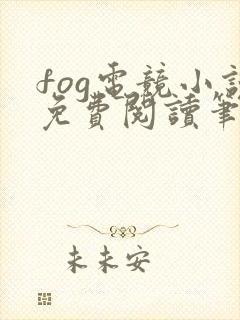 fog電競小說
免費閱讀筆
未未安